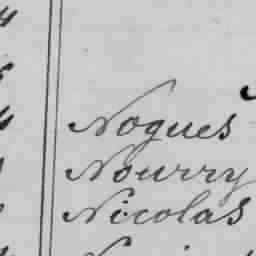 Nogues
Nourry
Nicolas